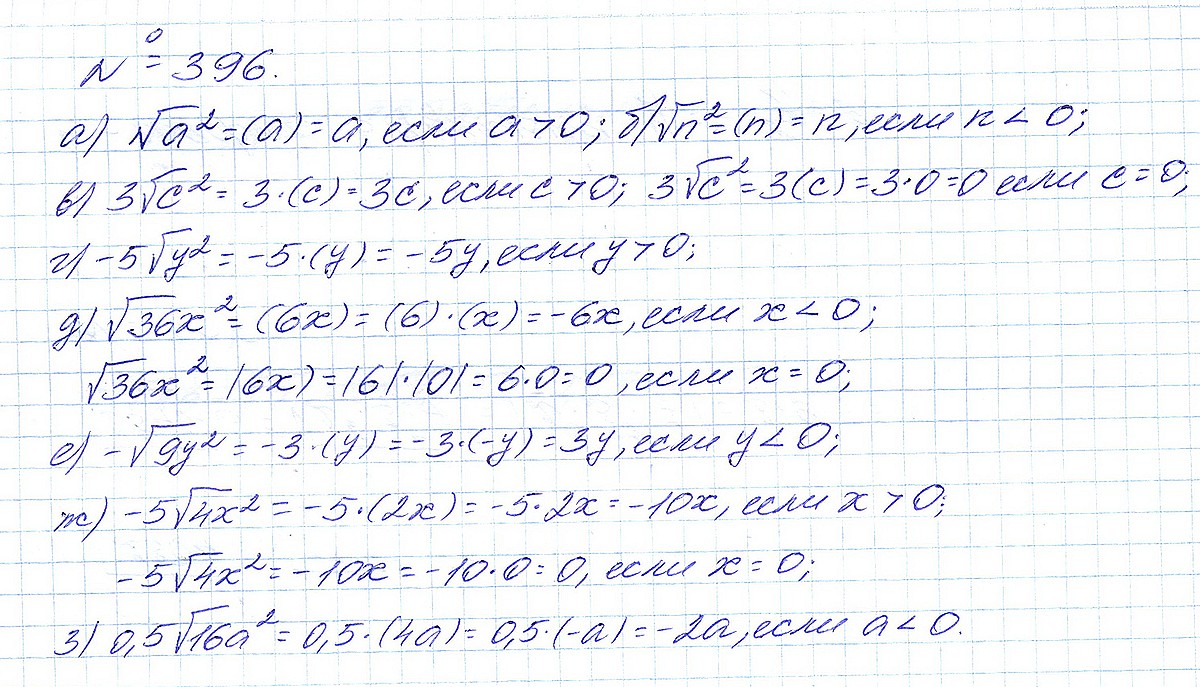 № 396.
а) √a² = (a) = a, если a > 0; б) √n² = (n) = n, если n < 0;
в) 3√c² = 3·(c) = 3c, если c > 0; 3√c² = 3(c) = 3·0 = 0 если c = 0;
г) -5√y² = -5·(y) = -5y, если y > 0;
д) √36x² = (6x) = (6)·(x) = -6x, если x < 0;
√36x² = |6x) = |6|·|0| = 6·0 = 0, если x = 0;
е) -√9y² = -3·(y) = -3·(-y) = 3y, если y < 0;
ж) -5√4x² = -5·(2x) = -5·2x = -10x, если x > 0;
-5√4x² = -10x = -10·0 = 0, если x = 0;
з) 0,5√16a² = 0,5·(4a) = 0,5·(-a) = -2a, если a < 0.